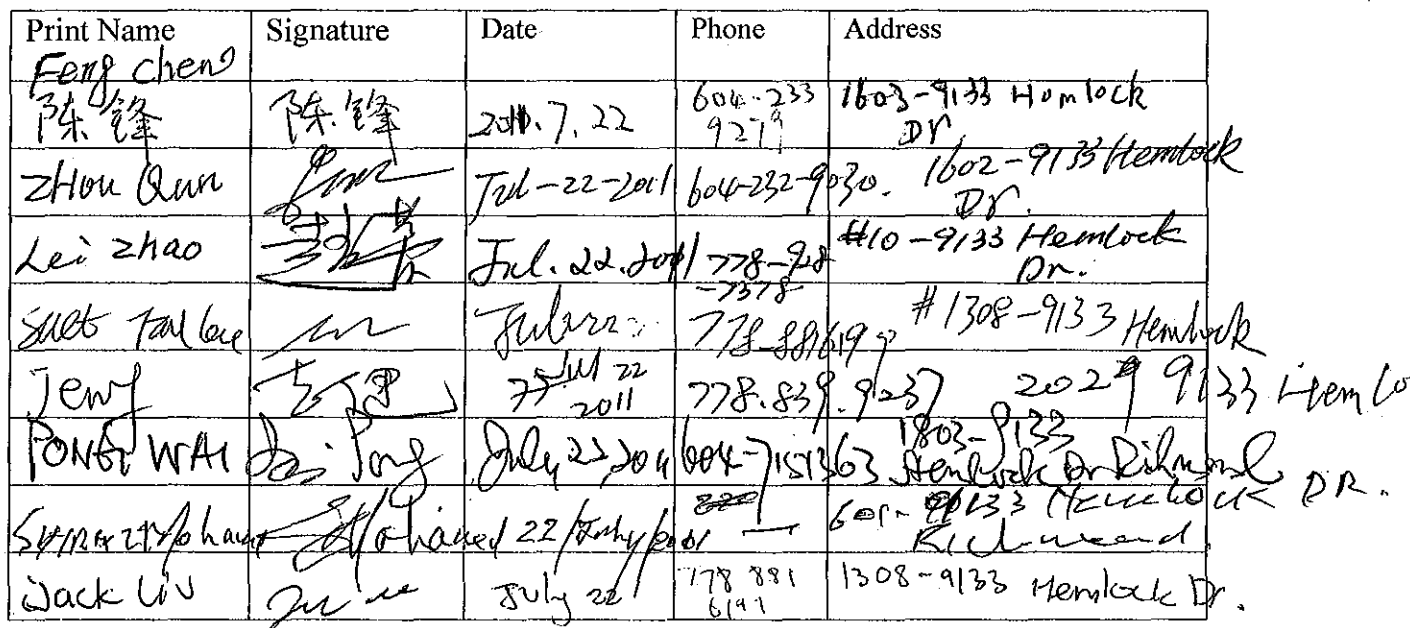 Print Name Signature Date Phone Address
Feng chen
陈锋 陈锋 2011.7.22 604-233 9279 1603-9133 Homlock Dr
ZHou Qun Jul-22-2011 604-232-9030. 1602-9133 Hemlock Dr.
Lei Zhao Jul.22.2011 778-928 -7378 #10-9133 Hemlock Dr.
#1308-9133 Hemlock
Jul 22 2011 778.839.9237 9133 Hemlo
PONG WAI Pong July 22, 2011 604-7151363 1803-9133 Hemlock Dr Richmond
9133 Hemlock DR. Richmond.
Jack Liu July 22 778 881 6191 1308-9133 Hemlock Dr.